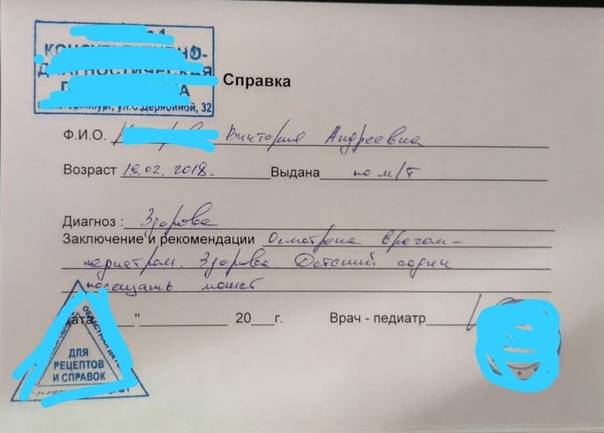 КОНСУЛЬТАТИВНО-
ДИАГНОСТИЧЕСКАЯ
ул.С.Дерябиной, 32
Справка
Ф.И.О. Виктория Андреевна
Возраст 19.02.2018. Выдана по м/т
Диагноз : Здорова
Заключение и рекомендации Осмотрена врачом-
педиатром. Здорова. Детский садик
посещать может
Дата ____"____ 20___г. Врач - педиатр
ОБЛАСТНАЯ ДЕТС
ДЛЯ
РЕЦЕПТОВ
И СПРАВОК